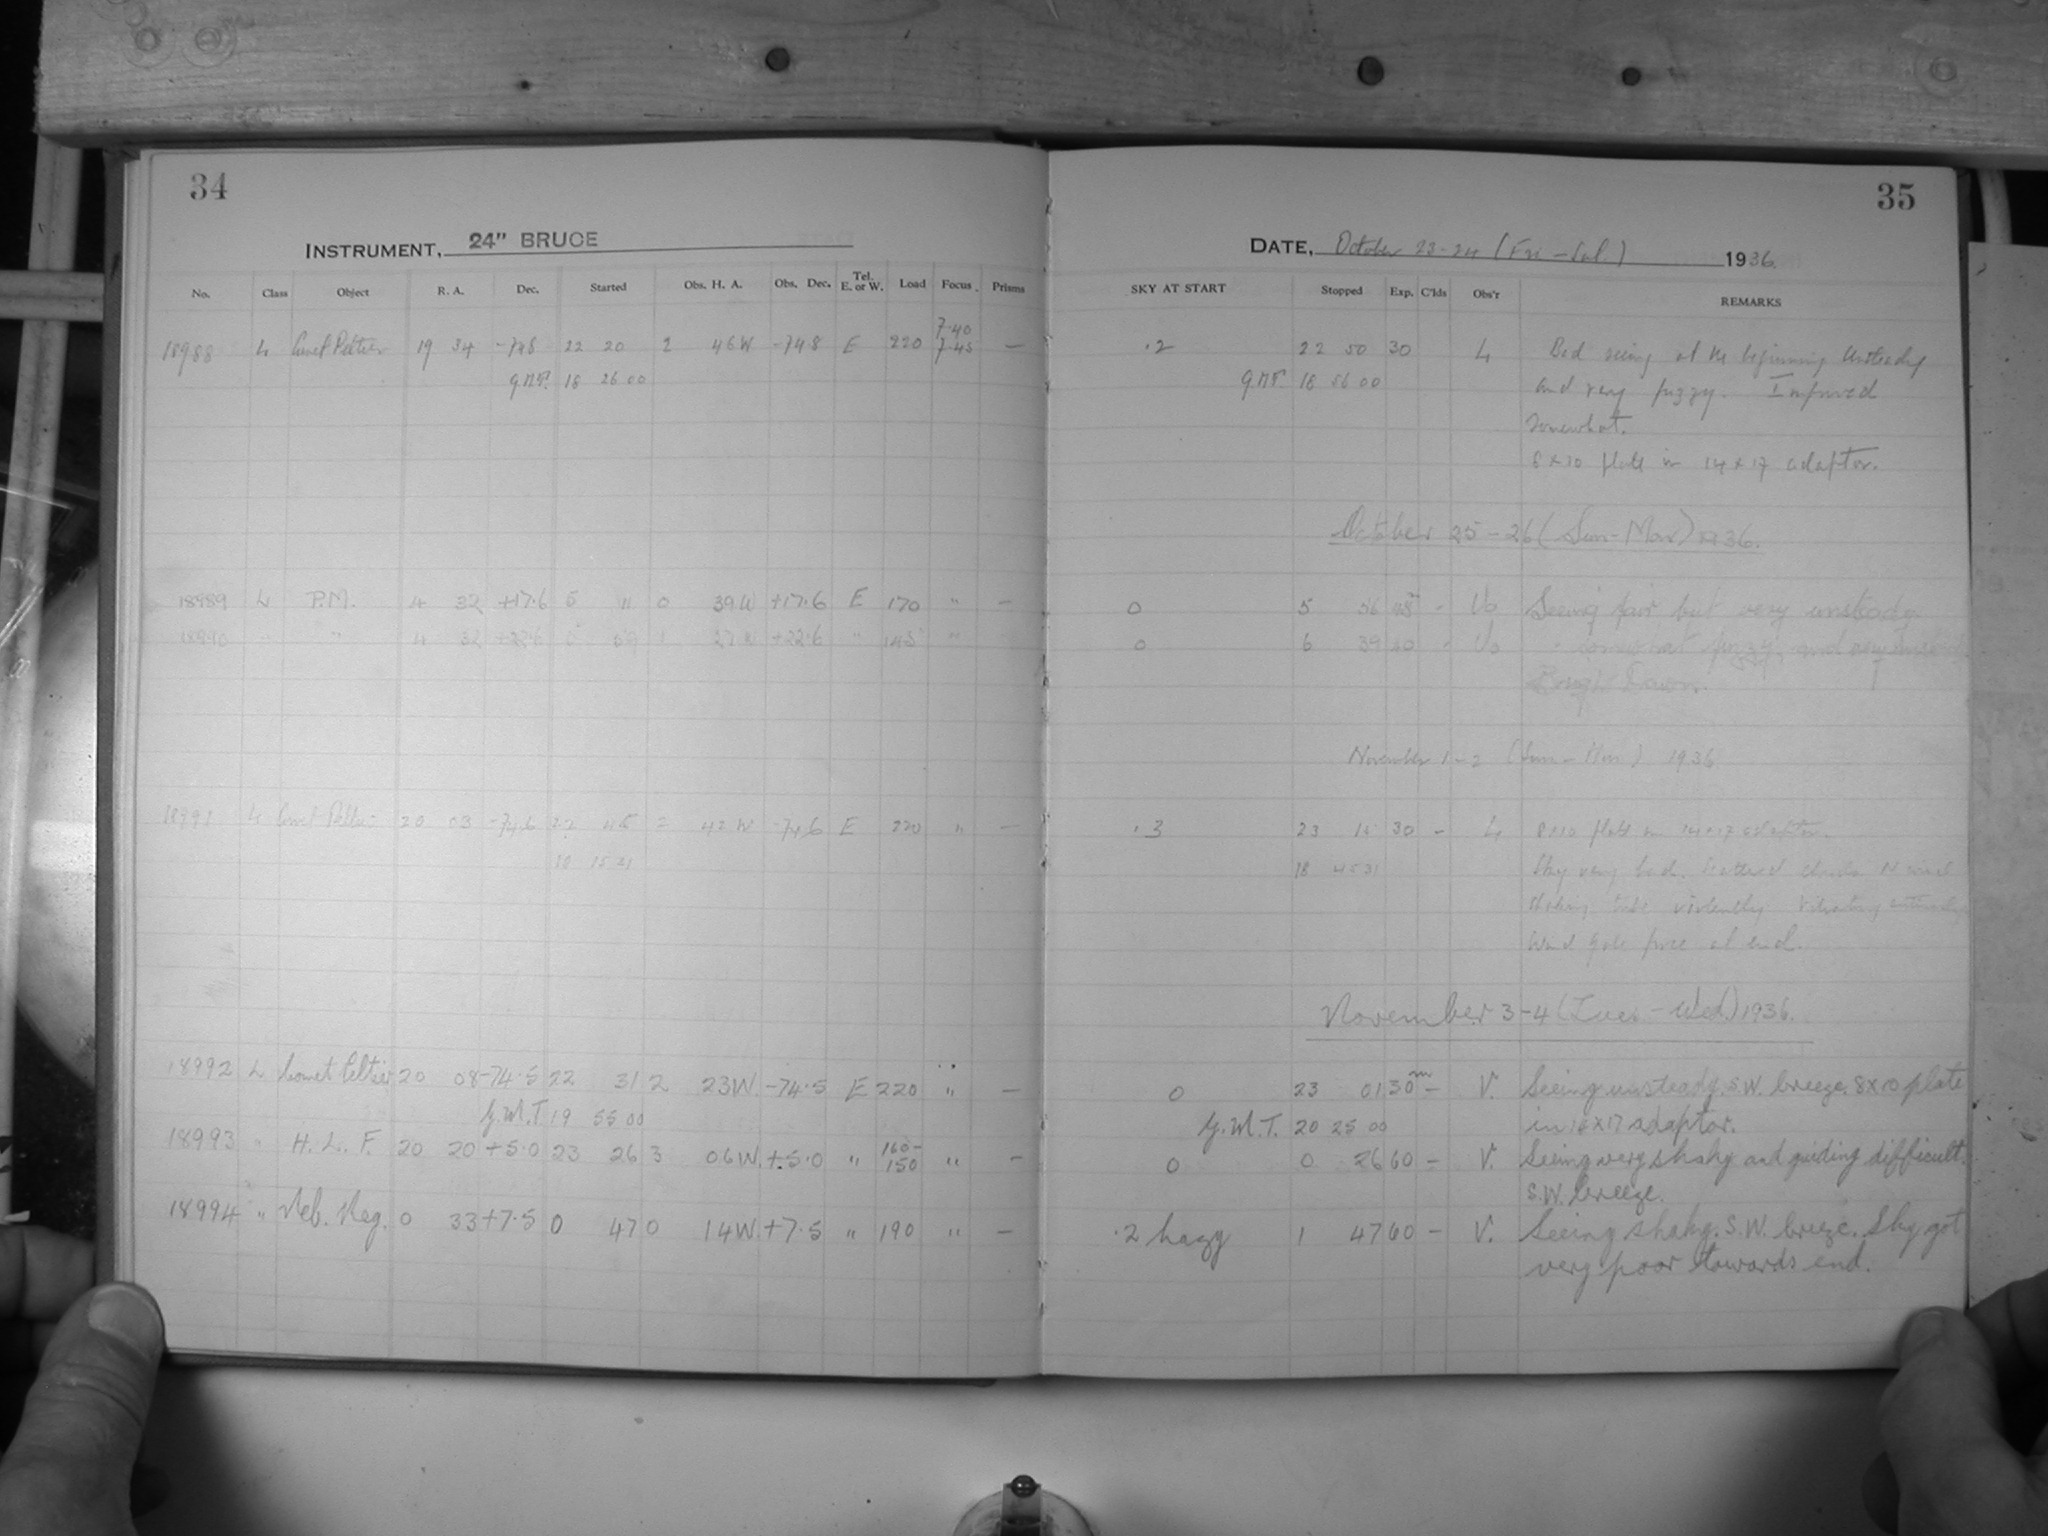 34
35
INSTRUMENT, 24" BRUCE
DATE, October 23-24 (Fri - Sat.) 1936.
No. Class Object R. A. Dec. Started Obs. H. A. Obs. Dec. Tel. E. or W. Load Focus Prisms
SKY AT START Stopped Exp. C'lds Obs'r REMARKS
7.40
18988 L Comet Peltier 19 34 -74.8 22 20 2 46W -74.8 E 220 7.45 — .2 22 50 30 L Bad seeing at the beginning Unsteady
G.M.T. 18 26 00 G.M.T. 18 56 00 and very fuzzy. Improved
somewhat.
8x10 plate in 14x17 adaptor.
October 25-26 (Sun-Mon) 1936.
18989 L P.M. 4 32 +17.6 5 11 0 39W +17.6 E 170 " — 0 5 56 45 - Vo Seeing fair but very unsteady.
18990 " " 4 32 +22.6 5 59 1 27W +22.6 " 145 " 0 6 39 40 - Vo " somewhat fuzzy, and very
Dawn.
November 1-2 (Sun-Mon) 1936.
18991 L Comet Peltier 20 03 -74.6 22 45 2 42W -74.6 E 220 " — .3 23 15 30 - L 8x10 plate in 14x17 adaptor.
18 45 31 Sky very bad. Scattered clouds. N wind
shaking tube violently. Vibrating
Wind gale force at end.
November 3-4 (Tues.-Wed.) 1936.
18992 L Comet Peltier 20 08 -74.5 22 31 2 23W. -74.5 E 220 " — 0 23 01 30m — V. Seeing unsteady. S.W. breeze. 8x10 plate
G.M.T. 19 55 00 G.M.T. 20 25 00 in 14x17 adaptor.
18993 " H. L. F. 20 20 +5.0 23 26 3 06W. +5.0 " 160-150 " — 0 0 26 60 — V. Seeing very shaky and guiding difficult.
S.W. breeze.
18994 " Neb. Reg. 0 33 +7.5 0 47 0 14W. +7.5 " 190 " — .2 hazy 1 47 60 — V. Seeing shaky. S.W. breeze. Sky got
very poor towards end.